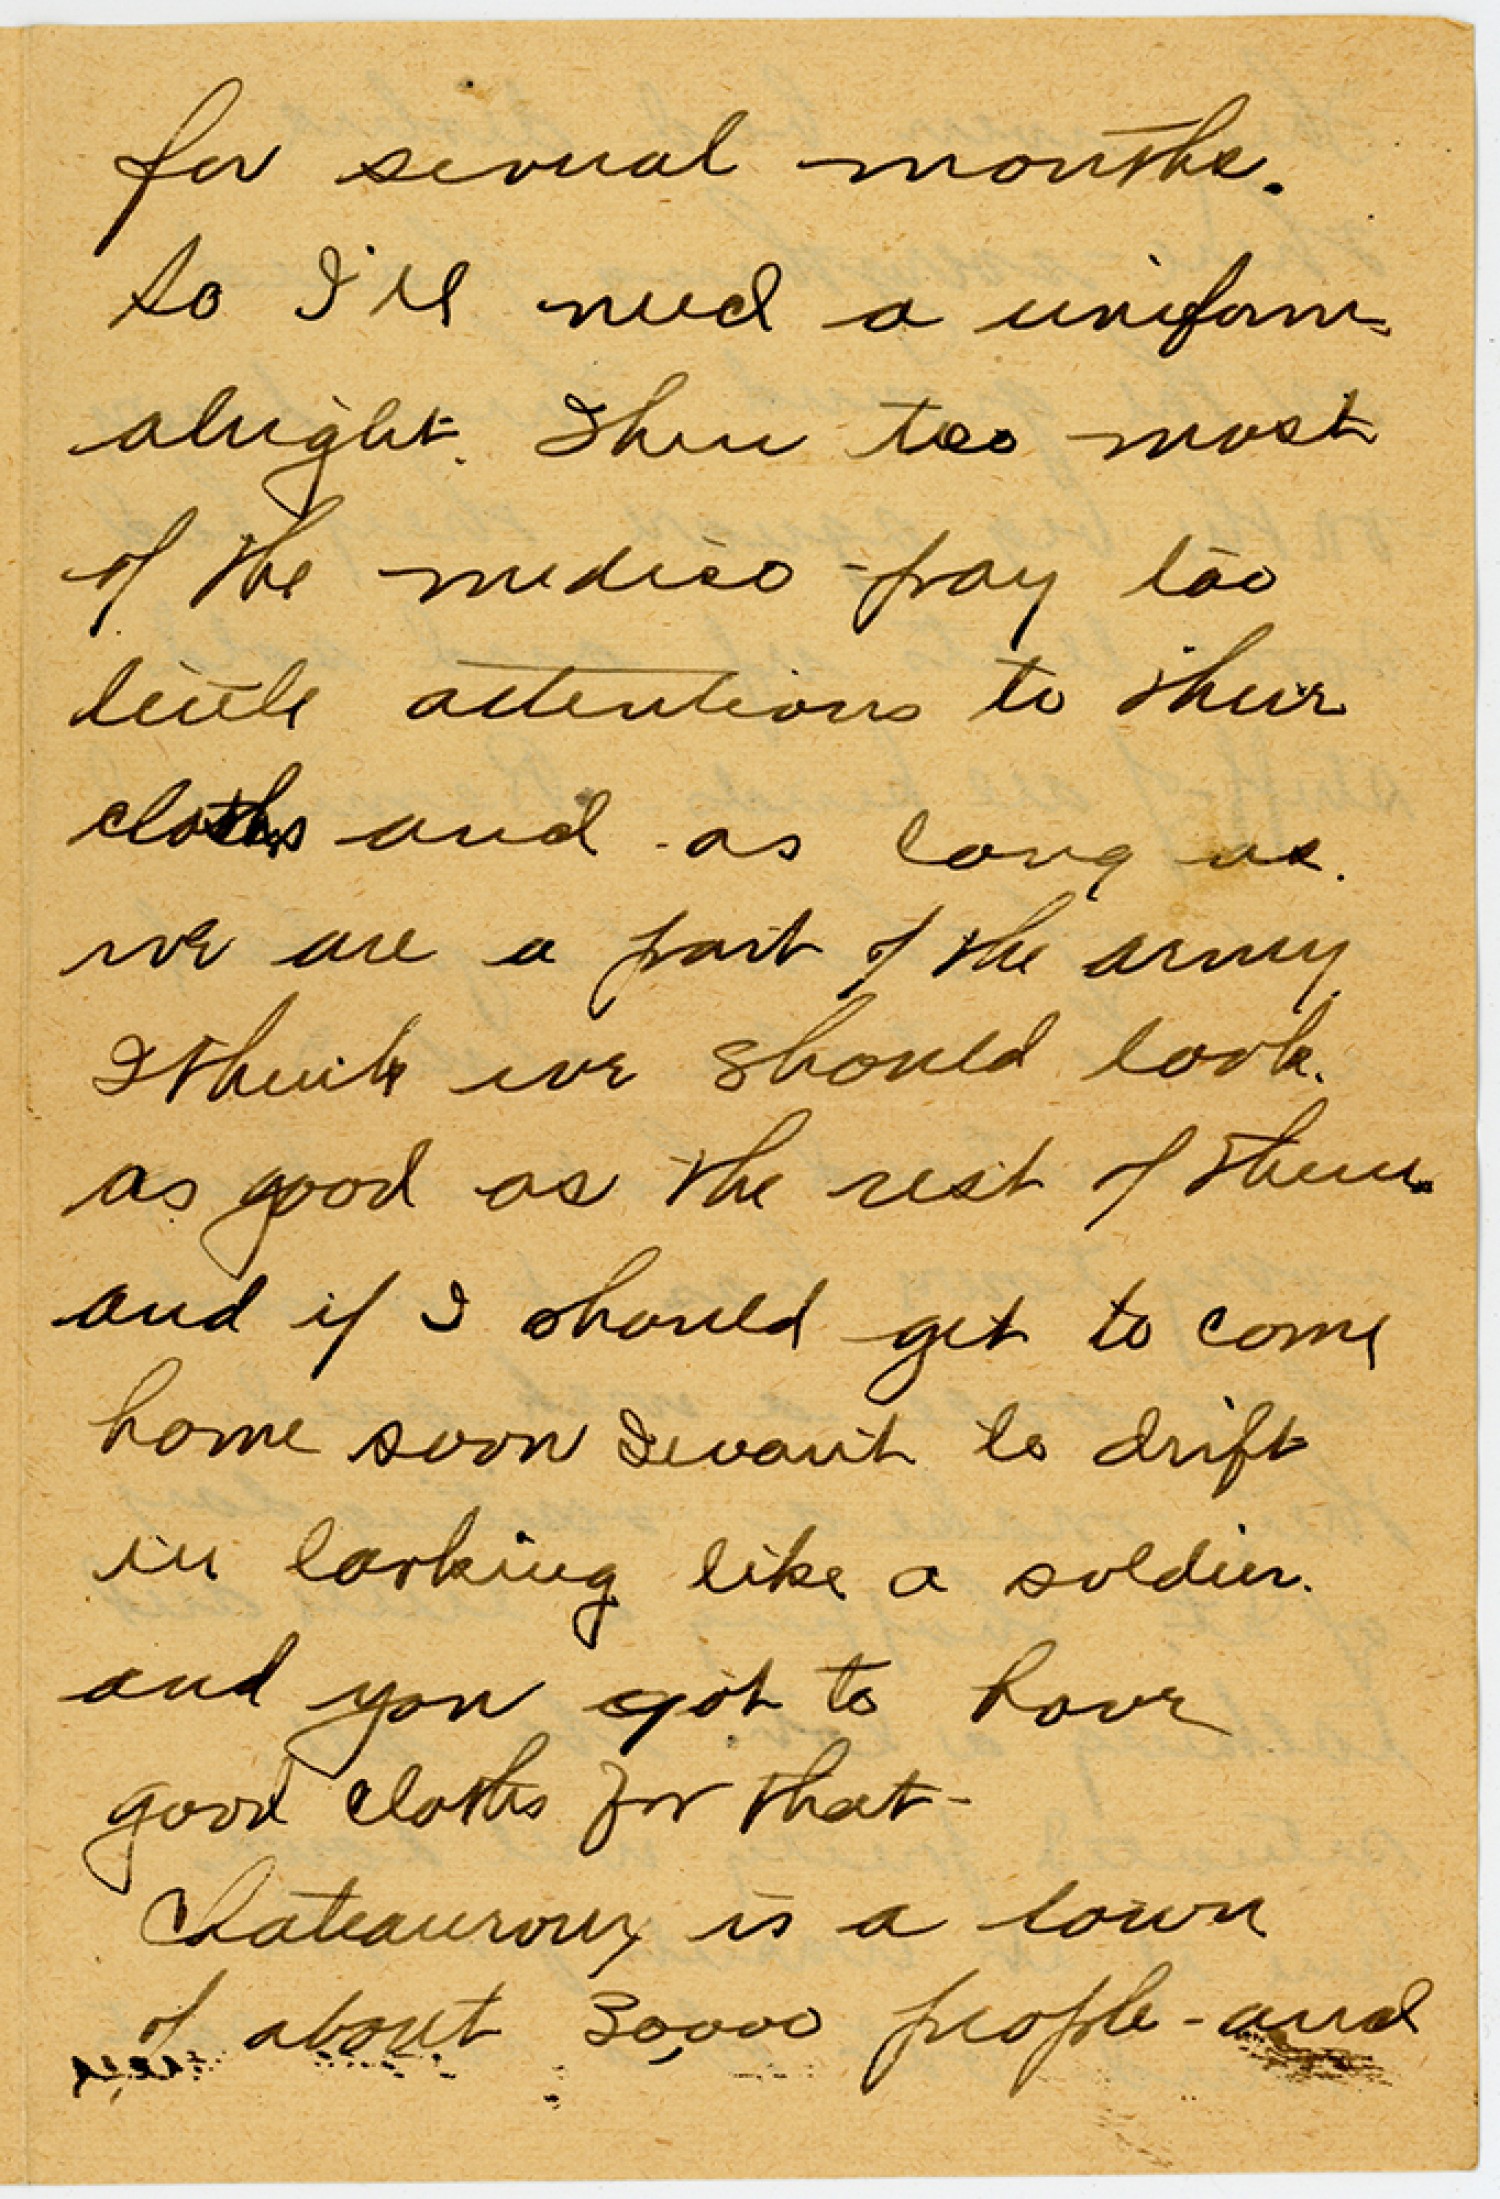 for several months.
so I'll need a uniform
alright. Then too most
of the medico pay too
little attentions to their
cloths and as long as
we are a part of the army
I think we should look
as good as the rest of them.
and if I should get to come
home soon I want to drift
in looking like a soldier.
and you got to have
good cloths for that -
Chateauroux is a town
of about 30,000 people - and